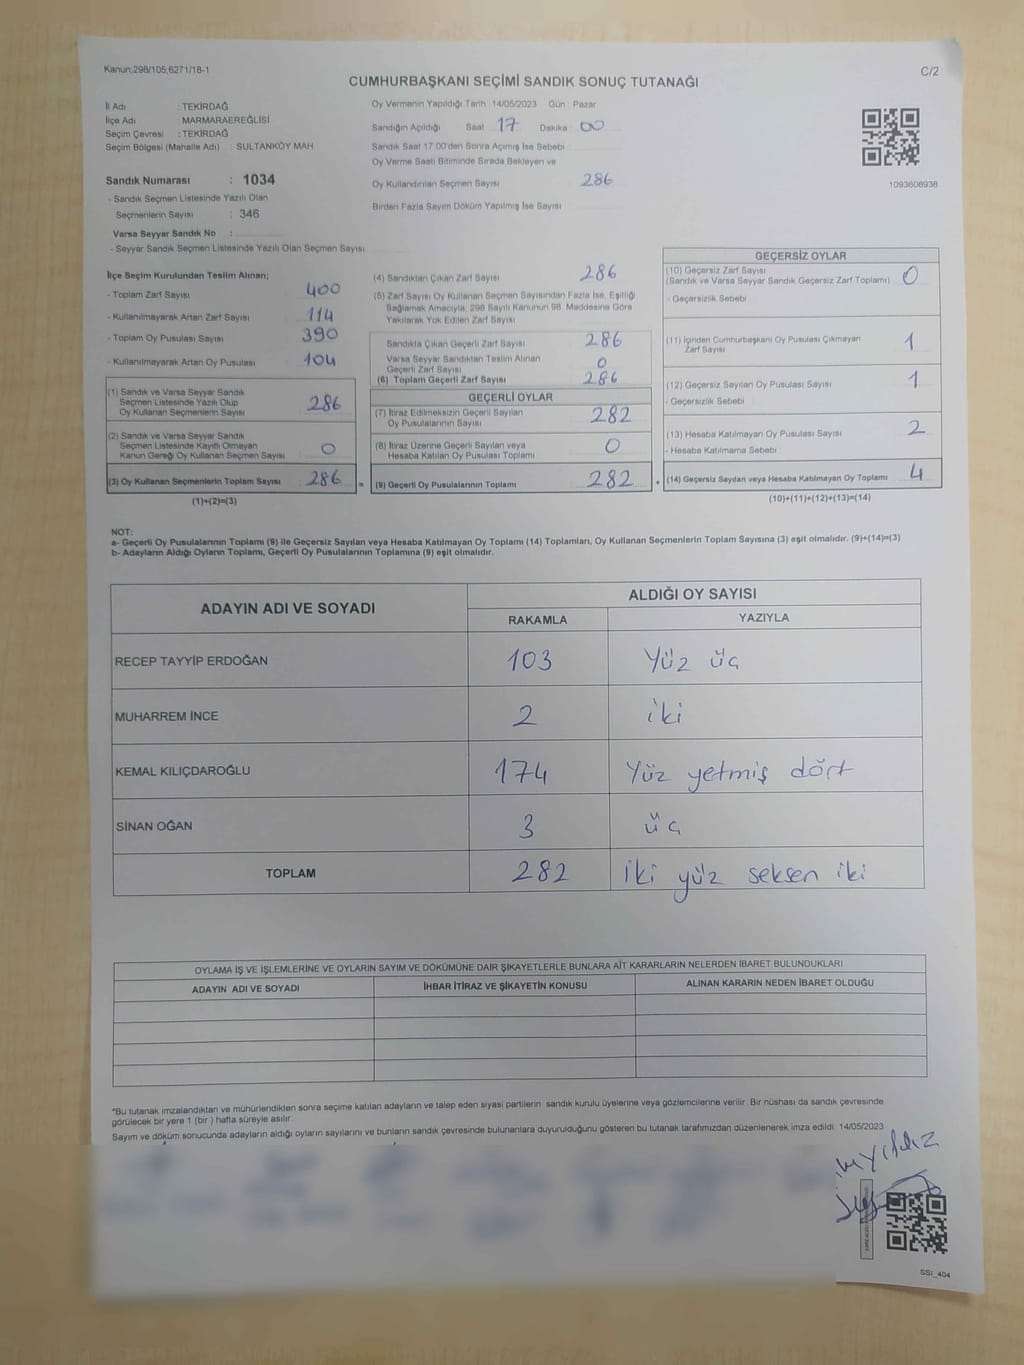 Kanun:298/105,6271/18-1
C/2
CUMHURBAŞKANI SEÇİMİ SANDIK SONUÇ TUTANAĞI
İl Adı : TEKİRDAĞ
İlçe Adı : MARMARAEREĞLİSİ
Seçim Çevresi : TEKİRDAĞ
Seçim Bölgesi (Mahalle Adı) : SULTANKÖY MAH
Sandık Numarası : 1034
- Sandık Seçmen Listesinde Yazılı Olan
Seçmenlerin Sayısı : 346
Varsa Seyyar Sandık No :
- Seyyar Sandık Seçmen Listesinde Yazılı Olan Seçmen Sayısı
Oy Vermenin Yapıldığı Tarih :14/05/2023 Gün : Pazar
Sandığın Açıldığı Saat 17 Dakika 00
Sandık Saat 17:00'den Sonra Açılmış İse Sebebi
Oy Verme Saati Bitiminde Sırada Bekleyen ve
Oy Kullandırılan Seçmen Sayısı 286
Birden Fazla Sayım Döküm Yapılmış İse Sayısı
1093608938
İlçe Seçim Kurulundan Teslim Alınan;
- Toplam Zarf Sayısı 400
- Kullanılmayarak Artan Zarf Sayısı 114
- Toplam Oy Pusulası Sayısı 390
- Kullanılmayarak Artan Oy Pusulası 104
(1) Sandık ve Varsa Seyyar Sandık
Seçmen Listesinde Yazılı Olup
Oy Kullanan Seçmenlerin Sayısı 286
(2) Sandık ve Varsa Seyyar Sandık
Seçmen Listesinde Kayıtlı Olmayan
Kanun Gereği Oy Kullanan Seçmen Sayısı 0
(3) Oy Kullanan Seçmenlerin Toplam Sayısı 286 =
(1)+(2)=(3)
(4) Sandıktan Çıkan Zarf Sayısı 286
(5) Zarf Sayısı Oy Kullanan Seçmen Sayısından Fazla İse, Eşitliği
Sağlamak Amacıyla, 298 Sayılı Kanunun 98. Maddesine Göre
Yakılarak Yok Edilen Zarf Sayısı
Sandıkta Çıkan Geçerli Zarf Sayısı 286
Varsa Seyyar Sandıktan Teslim Alınan
Geçerli Zarf Sayısı 0
(6) Toplam Geçerli Zarf Sayısı 286
GEÇERLİ OYLAR
(7) İtiraz Edilmeksizin Geçerli Sayılan
Oy Pusulalarının Sayısı 282
(8) İtiraz Üzerine Geçerli Sayılan veya
Hesaba Katılan Oy Pusulası Toplamı 0
(9) Geçerli Oy Pusulalarının Toplamı 282 +
GEÇERSİZ OYLAR
(10) Geçersiz Zarf Sayısı 0
(Sandık ve Varsa Seyyar Sandık Geçersiz Zarf Toplamı)
- Geçersizlik Sebebi
(11) İçinden Cumhurbaşkanı Oy Pusulası Çıkmayan
Zarf Sayısı 1
(12) Geçersiz Sayılan Oy Pusulası Sayısı 1
- Geçersizlik Sebebi
(13) Hesaba Katılmayan Oy Pusulası Sayısı 2
- Hesaba Katılmama Sebebi :
(14) Geçersiz Sayılan veya Hesaba Katılmayan Oy Toplamı 4
(10)+(11)+(12)+(13)=(14)
NOT:
a- Geçerli Oy Pusulalarının Toplamı (9) ile Geçersiz Sayılan veya Hesaba Katılmayan Oy Toplamı (14) Toplamları, Oy Kullanan Seçmenlerin Toplam Sayısına (3) eşit olmalıdır. (9)+(14)=(3)
b- Adayların Aldığı Oyların Toplamı, Geçerli Oy Pusulalarının Toplamına (9) eşit olmalıdır.
ADAYIN ADI VE SOYADI
ALDIĞI OY SAYISI
RAKAMLA YAZIYLA
RECEP TAYYİP ERDOĞAN 103 Yüz üç
MUHARREM İNCE 2 iki
KEMAL KILIÇDAROĞLU 174 Yüz yetmiş dört
SİNAN OĞAN 3 üç
TOPLAM 282 iki yüz seksen iki
OYLAMA İŞ VE İŞLEMLERİNE VE OYLARIN SAYIM VE DÖKÜMÜNE DAİR ŞİKAYETLERLE BUNLARA AİT KARARLARIN NELERDEN İBARET BULUNDUKLARI
ADAYIN ADI VE SOYADI İHBAR İTİRAZ VE ŞİKAYETİN KONUSU ALINAN KARARIN NEDEN İBARET OLDUĞU
*Bu tutanak imzalandıktan ve mühürlendikten sonra seçime katılan adayların ve talep eden siyasi partilerin sandık kurulu üyelerine veya gözlemcilerine verilir. Bir nüshası da sandık çevresinde
görülecek bir yere 1 (bir ) hafta süreyle asılır.
Sayım ve döküm sonucunda adayların aldığı oyların sayılarını ve bunların sandık çevresinde bulunanlara duyurulduğunu gösteren bu tutanak tarafımızdan düzenlenerek imza edildi. 14/05/2023
SSI_404